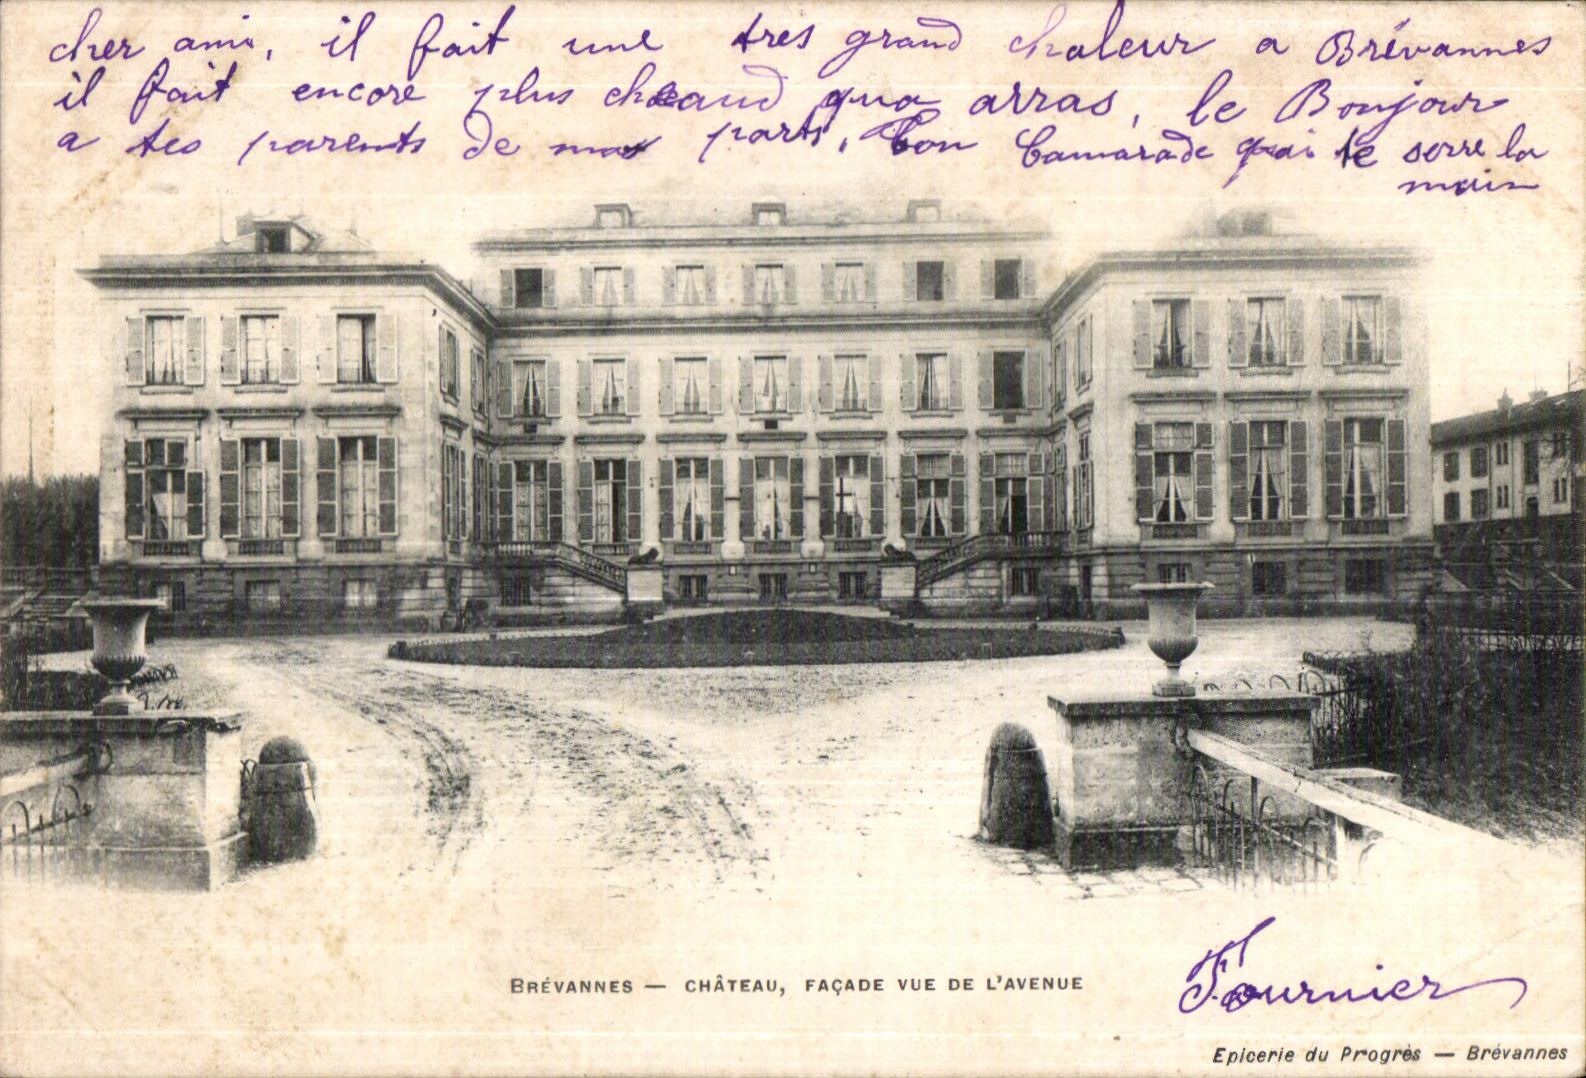 cher ami, il fait une tres grand chaleur a Brévannes
il fait encore plus chaud qua arras, le Bonjour
a tes parents de ma part, ton Camarade qui te serre la
main
BRÉVANNES — CHÂTEAU, FAÇADE VUE DE L'AVENUE
Fournier
Epicerie du Progrès — Brévannes